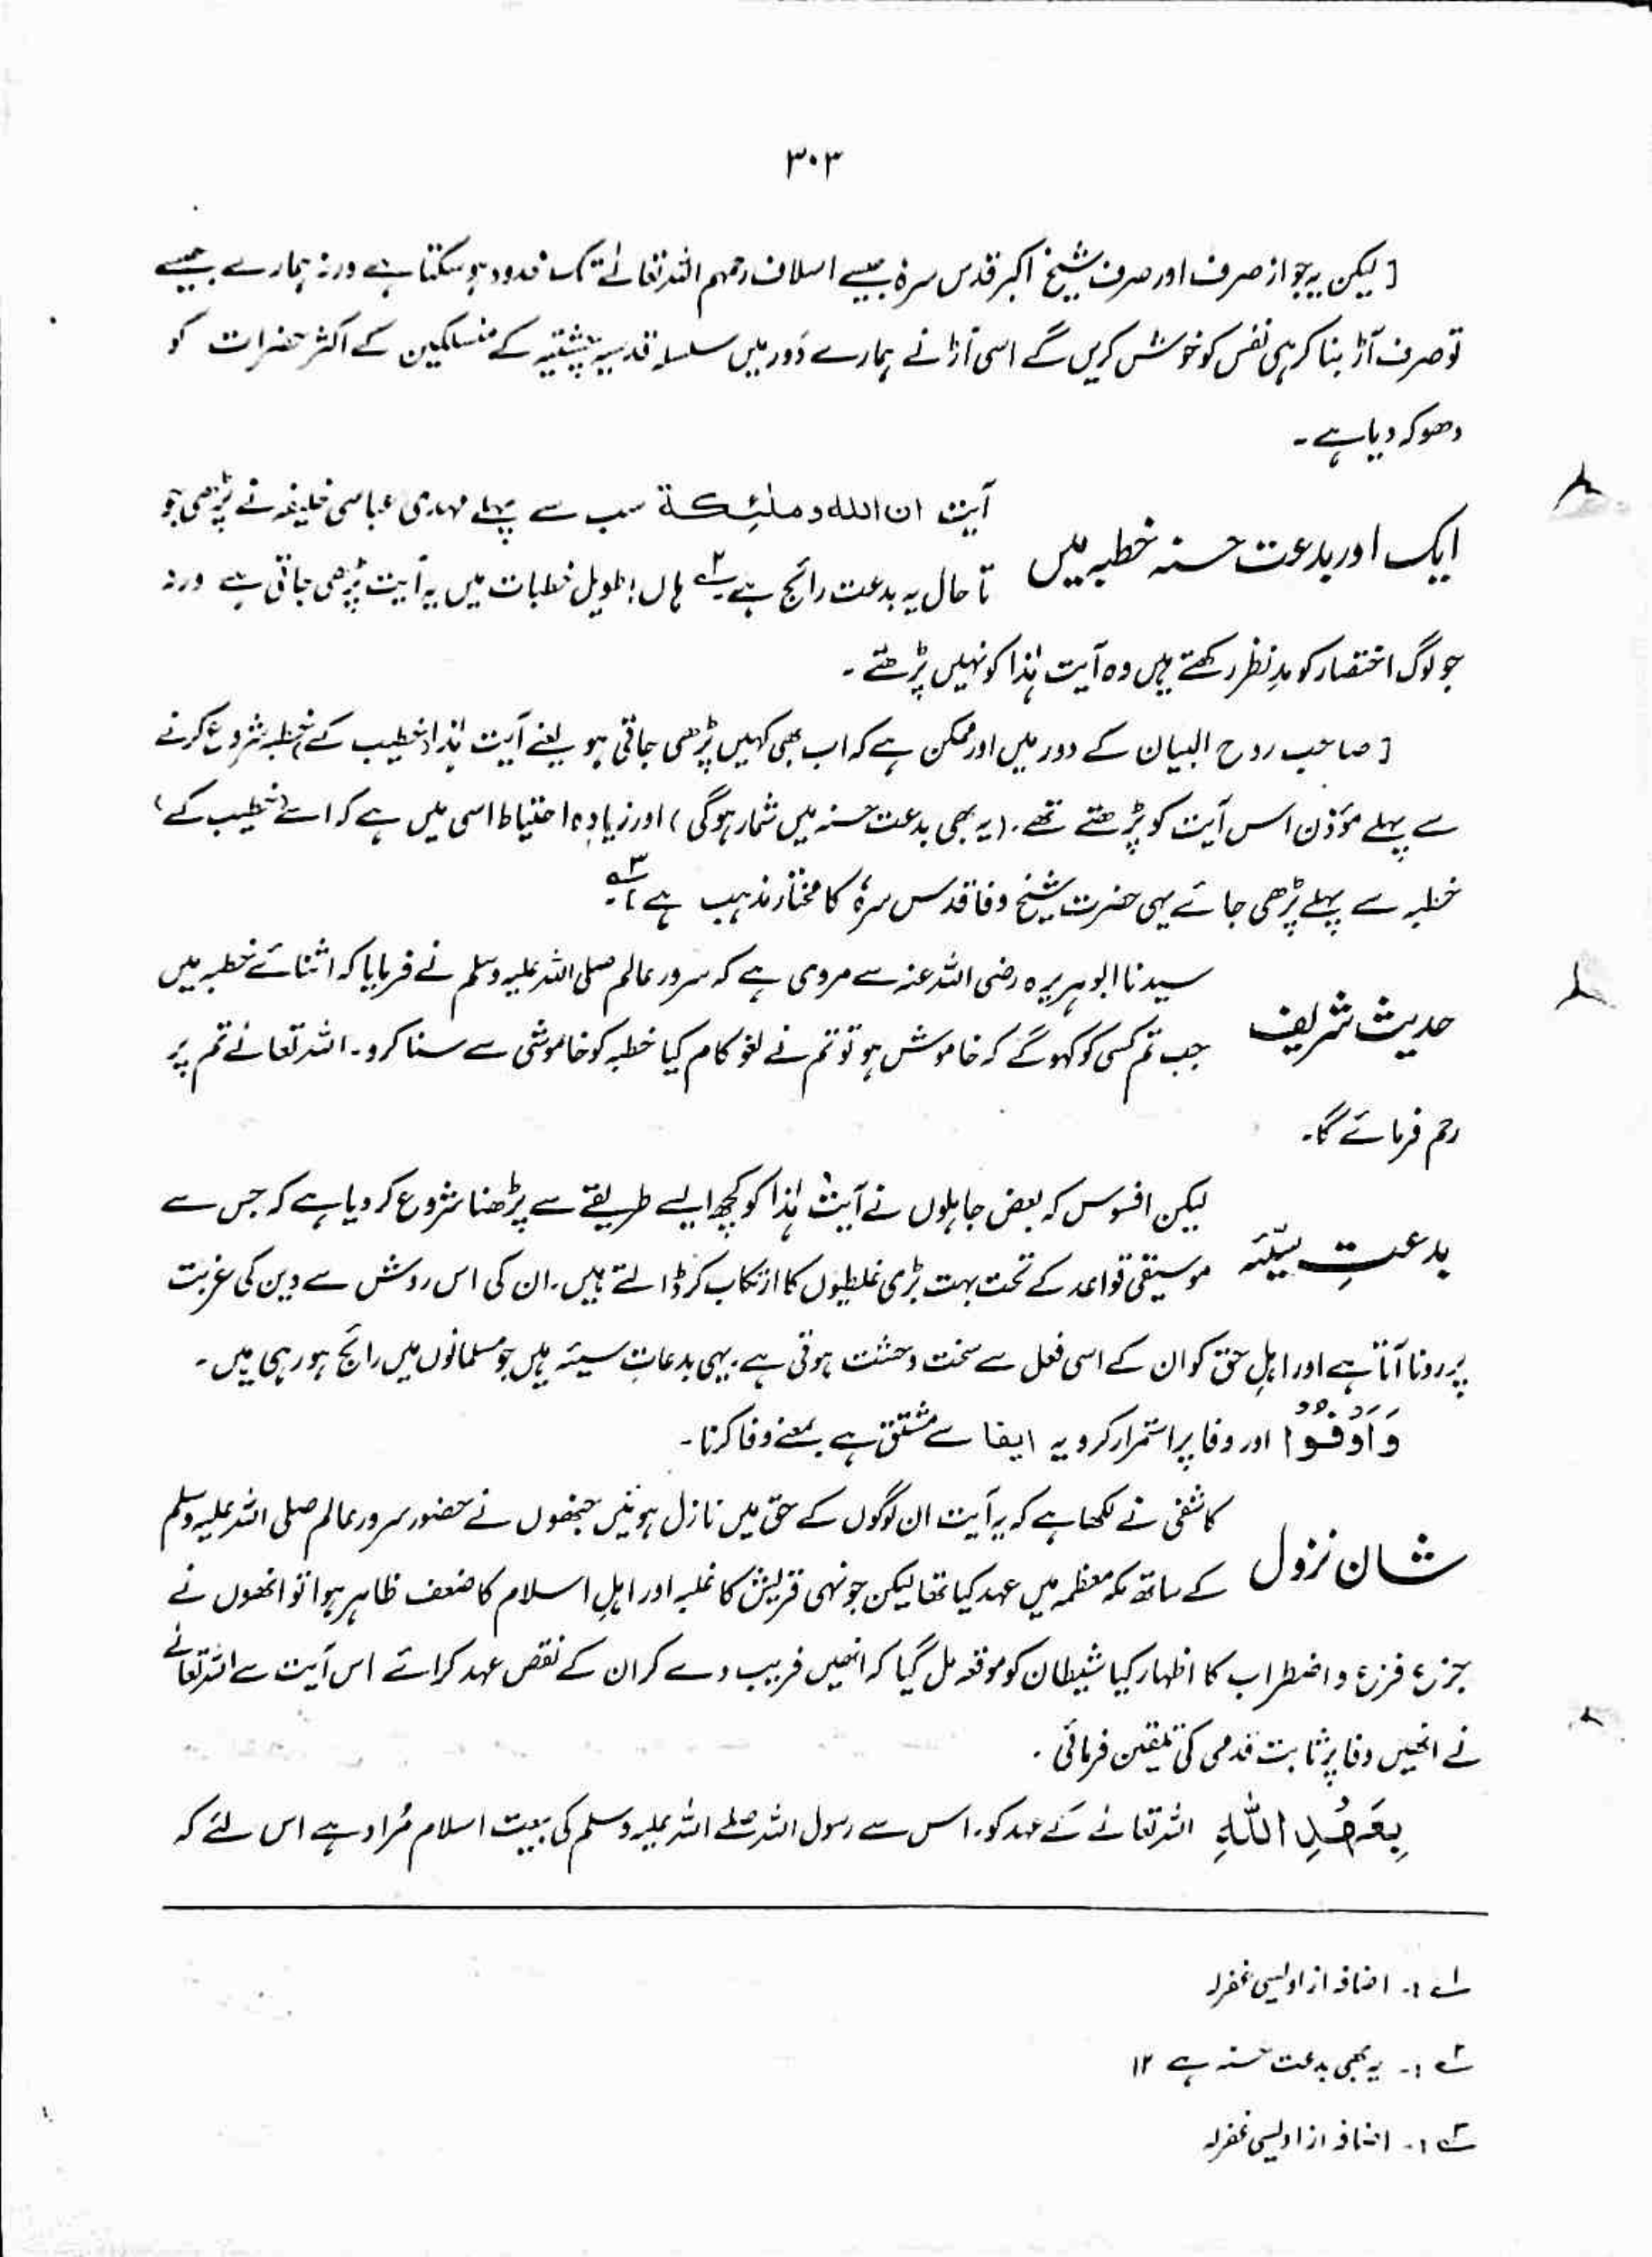 ۳۰۳
[ لیکن یہ جواز صرف اور صرف شیخ اکبر قدس سرہٗ جیسے اسلاف رحمہم اللہ تعالےٰ تک محدود ہو سکتا ہے ورنہ ہمارے جیسے
تو صرف آڑ بنا کر ہی نفس کو خوش کریں گے اسی آڑ نے ہمارے دَور میں سلسلہ قدسیہ چشتیہ کے منسلکین کے اکثر حضرات کو
دھوکہ دیا ہے۔
ایک اور بدعت حسنہ خطبہ میں
آیت ان اللہ و ملٰئکتہ سب سے پہلے مہدی عباسی خلیفہ نے پڑھی جو
تا حال یہ بدعت رائج ہے۲؎ ہاں! طویل خطبات میں یہ آیت پڑھی جاتی ہے ورنہ
جو لوگ اختصار کو مدِ نظر رکھتے ہیں وہ آیت ہٰذا کو نہیں پڑھتے۔
[ صاحب روح البیان کے دور میں اور ممکن ہے کہ اب بھی کہیں پڑھی جاتی ہو یعنے آیت ہٰذا خطیب کے خطبہ شروع کرنے
سے پہلے مؤذن اس آیت کو پڑھتے تھے۔ (یہ بھی بدعت حسنہ میں شمار ہوگی) اور زیادہ احتیاط اسی میں ہے کہ اسے (خطیب کے)
خطبہ سے پہلے پڑھی جائے یہی حضرت شیخ وفا قدس سرہٗ کا مختار مذہب ہے]۳؎
حدیث شریف
سیدنا ابوہریرہ رضی اللہ عنہ سے مروی ہے کہ سرور عالم صلی اللہ علیہ وسلم نے فرمایا کہ اثنائے خطبہ میں
جب تم کسی کو کہو گے کہ خاموش ہو تو تم نے لغو کام کیا خطبہ کو خاموشی سے سنا کرو۔ اللہ تعالےٰ تم پر
رحم فرمائے گا۔
بدعتِ سیّئہ
لیکن افسوس کہ بعض جاہلوں نے آیت ہٰذا کو کچھ ایسے طریقے سے پڑھنا شروع کر دیا ہے کہ جس سے
موسیقی قواعد کے تحت بہت بڑی غلطیوں کا ارتکاب کر ڈالتے ہیں۔ ان کی اس روش سے دین کی غربت
پر رونا آتا ہے اور اہلِ حق کو ان کے اسی فعل سے سخت وحشت ہوتی ہے۔ یہی بدعاتِ سیئہ ہیں جو مسلمانوں میں رائج ہو رہی ہیں۔
وَاَوْفُوْا اور وفا پر استمرار کرو یہ ایفا سے مشتق ہے بمعنے وفا کرنا۔
شان نزول
کاشفی نے لکھا ہے کہ یہ آیت ان لوگوں کے حق میں نازل ہوئیں جنھوں نے حضور سرور عالم صلی اللہ علیہ وسلم
کے ساتھ مکہ معظمہ میں عہد کیا تھا لیکن جونہی قریش کا غلبہ اور اہلِ اسلام کا ضعف ظاہر ہوا تو انھوں نے
جزع فزع و اضطراب کا اظہار کیا شیطان کو موقعہ مل گیا کہ انھیں فریب دے کر ان کے نقص عہد کرائے اس آیت سے اللہ تعالےٰ
نے انھیں وفا پر ثابت قدمی کی تلقین فرمائی۔
بِعَھْدِ اللّٰہِ اللہ تعالےٰ کے عہد کو۔ اس سے رسول اللہ صلے اللہ علیہ وسلم کی بیعت اسلام مُراد ہے اس لئے کہ
۱؎ :۔ اضافہ از اویسی غفرلہ
۲؎ :۔ یہ بھی بدعت حسنہ ہے ۱۲
۳؎ :۔ اضافہ از اویسی غفرلہ